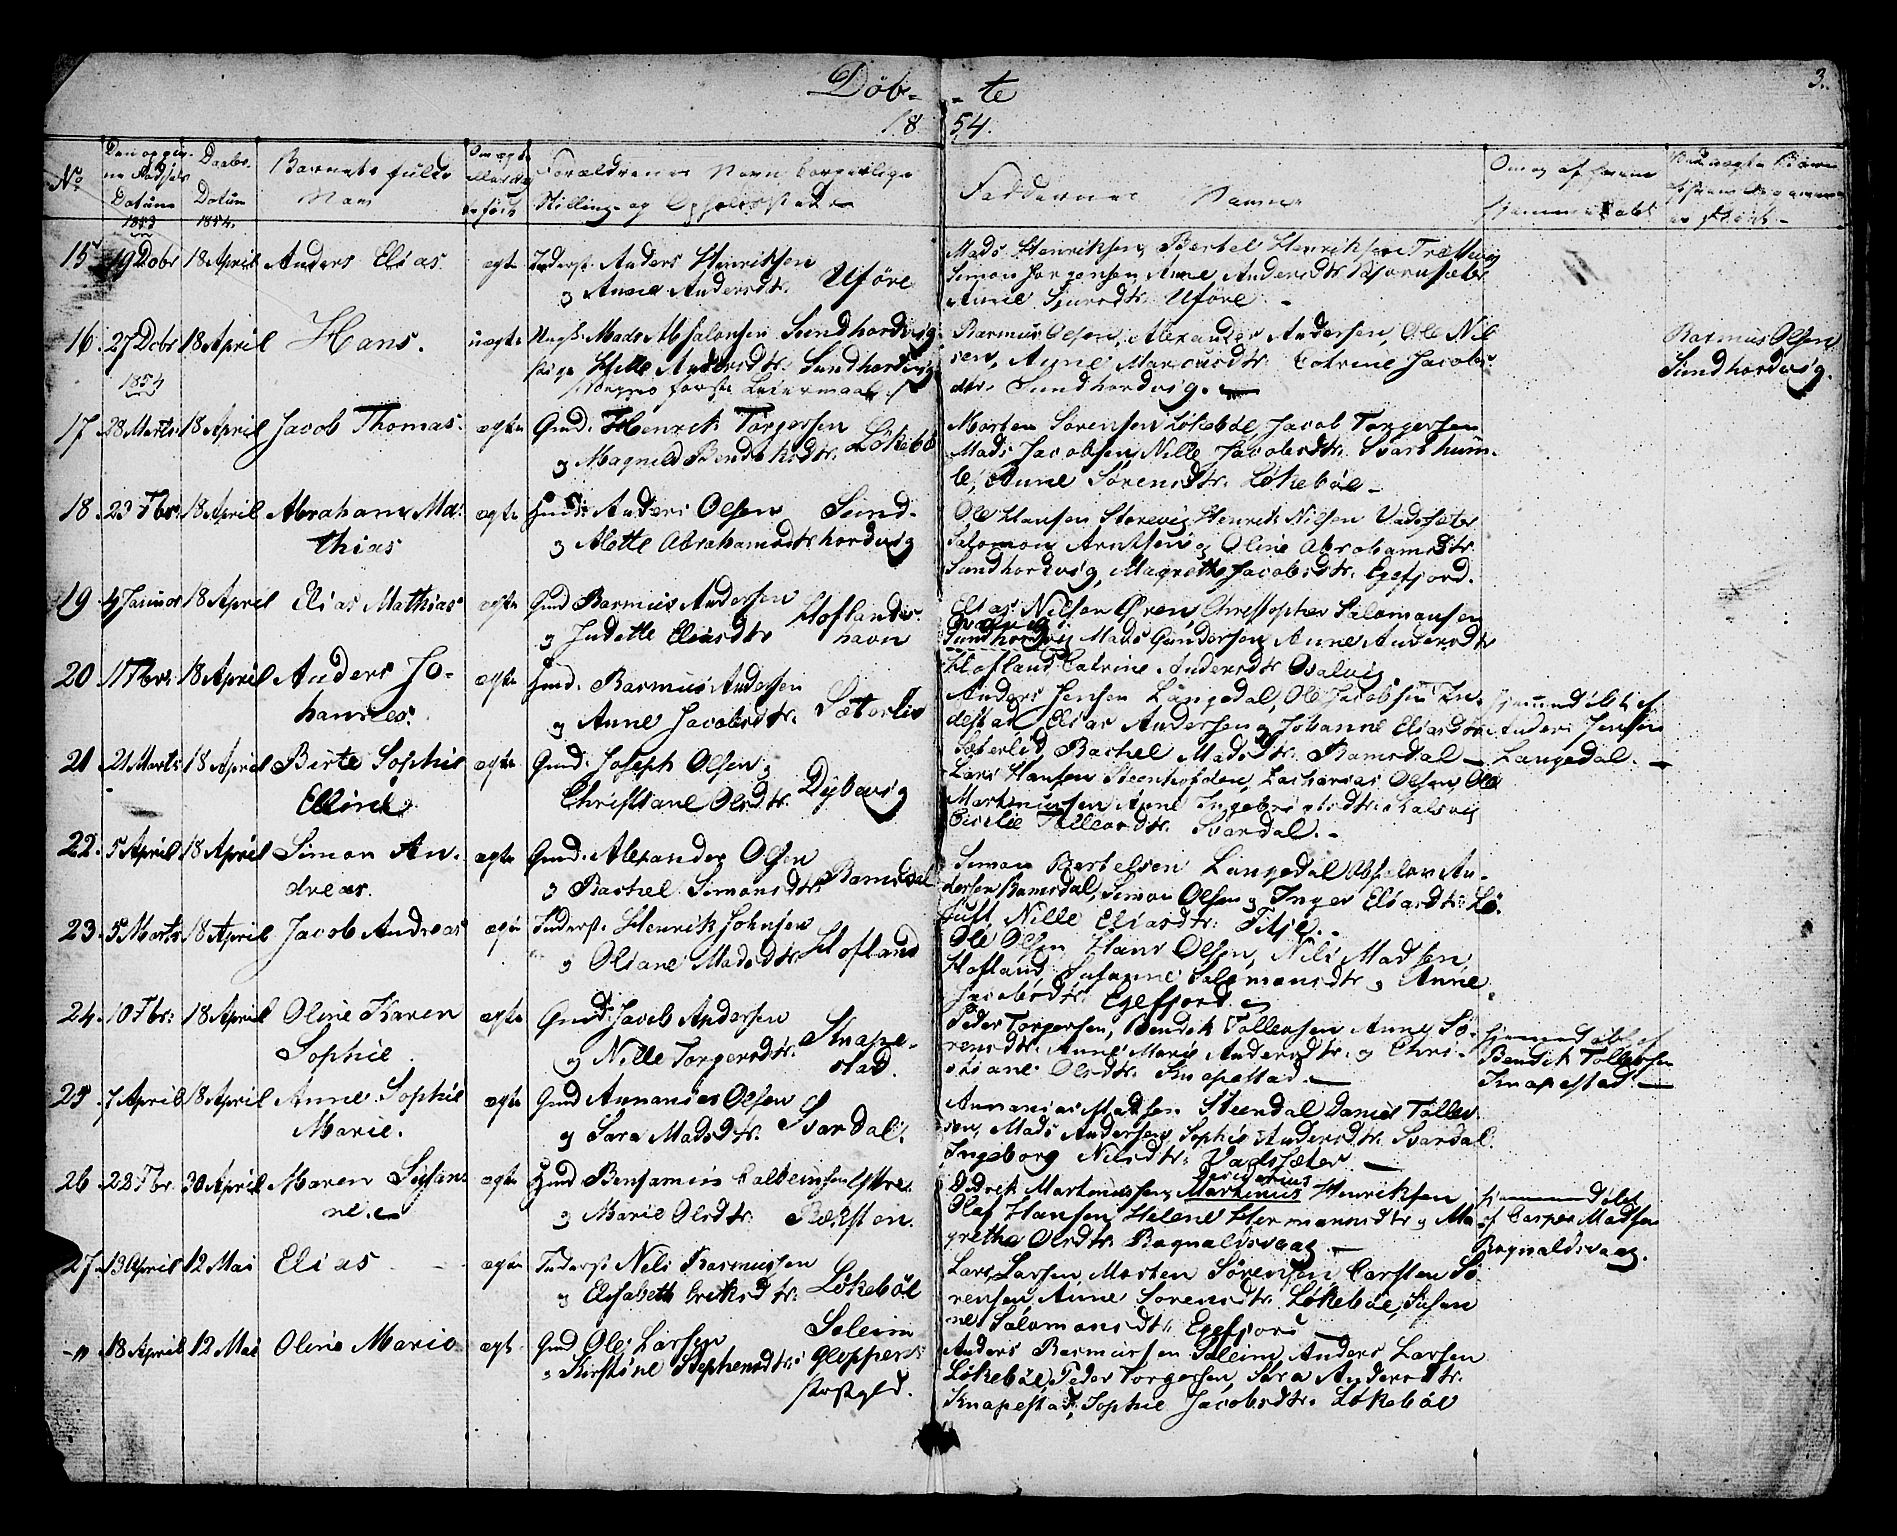 Döb- - te
3.
18 54.
No
Datum
Daabs
Datum
Barnets fulde
Navn
Forældrenes Navn borgerlige
Stilling og Opholdssted
Faddernes Navne
Om og af hvem
hjemmedøbt
1853
1854.
15 19 Dbr 18 April Anders Elias ægte Inderst. Anders Henriksen
og Anne Andersdtr. Uföre
Mads Henriksen, Bertel Henriksen
Simon Jørgensen Anne Andersdtr.
Anne Uföre
16. 27 Dbr 18 April Hans. uægte Mads Sundhordvig
pige Andersdtr. Sundhordvig
første Leiermaal
Rasmus Olsen, Alexander Andersen, Ole Nil
sen, Marcusdtr. Catrine Jacobs-
dtr. Sundhordvig.
Rasmus Olsen
Sundhordvig.
1854
17. 28 Marts 18 April Jacob Thomas. ægte Gmd. Henrik Torgersen
og Magnild Løkebö
Morten Sørensen Løkeböe, Jacob Torgersen
Mads Jacobsen, Nille Jacobsdtr. Svarthum-
le, Anne Sørensdtr. Løkeböe
18. 23 Fbr. 18 April Abraham Ma-
thias ægte Anders Olsen Sund-
og Alette Abrahamsdtr. hordvig
Ole Hansen Storevig, Henrik Nilsen Vadsæter
Salomon Arntsen og Oline Abrahamsdtr.
Sundhordvig, Magrethe Jacobsdtr. Egefjord.
19 4 Januar 18 April Elias Mathias ægte Gmd Rasmus Andersen
og Judette Eliasdtr Hoflands-
havn
Elias Nilsen Øren Christopher Salomonsen
Sundhordvig Mads Gundersen Anne Andersdtr
Hofland Catrine Andersdtr Osalvig
20 11 Fbr. 18 April Anders Jo-
hannes. ægte Gmd. Rasmus Andersen
og Anne Jacobsdtr. Sæterlid
Anders Jensen Langedal, Ole Jacobsen In-
destad Elias Andersen og Johanne Eliasdtr
Sæterlid, Rachel Madsdtr. Ramsdal
hjemmedøbt af
Anders Jensen
Langedal.
21 21 Marts 18 April Birte Sophie
Elline ægte Gmd. Joseph Olsen og
Christiane Olsdtr. Dybevig
Lars Hansen Steenhofden, Zacharias Olsen, Ole
Martinussen Anne
Cicelie Tollevsdtr. Svardal.
22. 5 April 18 April Simon An-
dreas. ægte Gmd. Alexander Olsen
og Rachel Simonsdtr. Ramsdal
Simon Bertelsen Langedal Absalon An-
dersen Ramsdal, Simon Olsen og Inger Eliasdtr. Lø-
Nille Eliasdtr. Titje.
23. 5 Marts 18 April Jacob Andreas ægte Inderst. Henrik Johnsen
og Oliane Madsdtr. Hofland
Ole Olsen Hans Olsen, Nils Madsen
Hofland Susanne Salomonsdtr. og Anne
Jacobsdtr. Egefjord.
24. 10 Fbr. 18 April Oline Karen
Sophie ægte Gmd. Jacob Andersen
og Nille Torgersdtr. Knape-
stad.
Peder Torgersen, Bendik Tollevsen Anne Sø-
rensdtr. Anne Marie Andersdtr. og Chri-
stiane Olsdtr. Knapestad.
hjemmedøbt af
Bendik Tollefsen
Knapestad.
25 7 April 18 April Anne Sophie
Marie. ægte Gmd Annanias Olsen
og Sara Madsdtr. Svardal.
Annanias Madsen Steendal Daniel Tollev
sen, Mads Andersen, Sophie Andersdtr. Svardal
Ingeborg Nilsdtr. Vadsæter
26 22 Fbr. 30 April Maren Susan-
ne. ægte Gmd Benjamin Ytre
og Marie Olsdtr. Røksten.
Didrik Martinussen, Martinus Henriksen
Olai Hansen, Helene Hermannsdtr. og Ma
grethe Olsdtr. Rognaldsvaag
hjemmedøbt
af Casper Madsen
Rognaldsvaag.
27 13 April 12 Mai Elias ægte Inderst Nils Rasmussen
og Elisabeth Eriksdtr. Løkeböe
Lars Larsen, Morten Sørensen, Carsten Sø-
rensen, Anne Sørensdtr. Løkeböe, Susan
ne Salomonsdtr. Egefjord
" 18 April 12 Mai Oline Marie ægt. Gmd Ole Larsen Soleim
Kirstine Stephensdtr. Gloppens
Præstgld.
Anders Rasmussen Soleim, Anders Larsen
Løkeböe, Peder Torgersen, Sara Andersdtr.
Knapestad, Sophie Jacobsdtr. Løkeböe